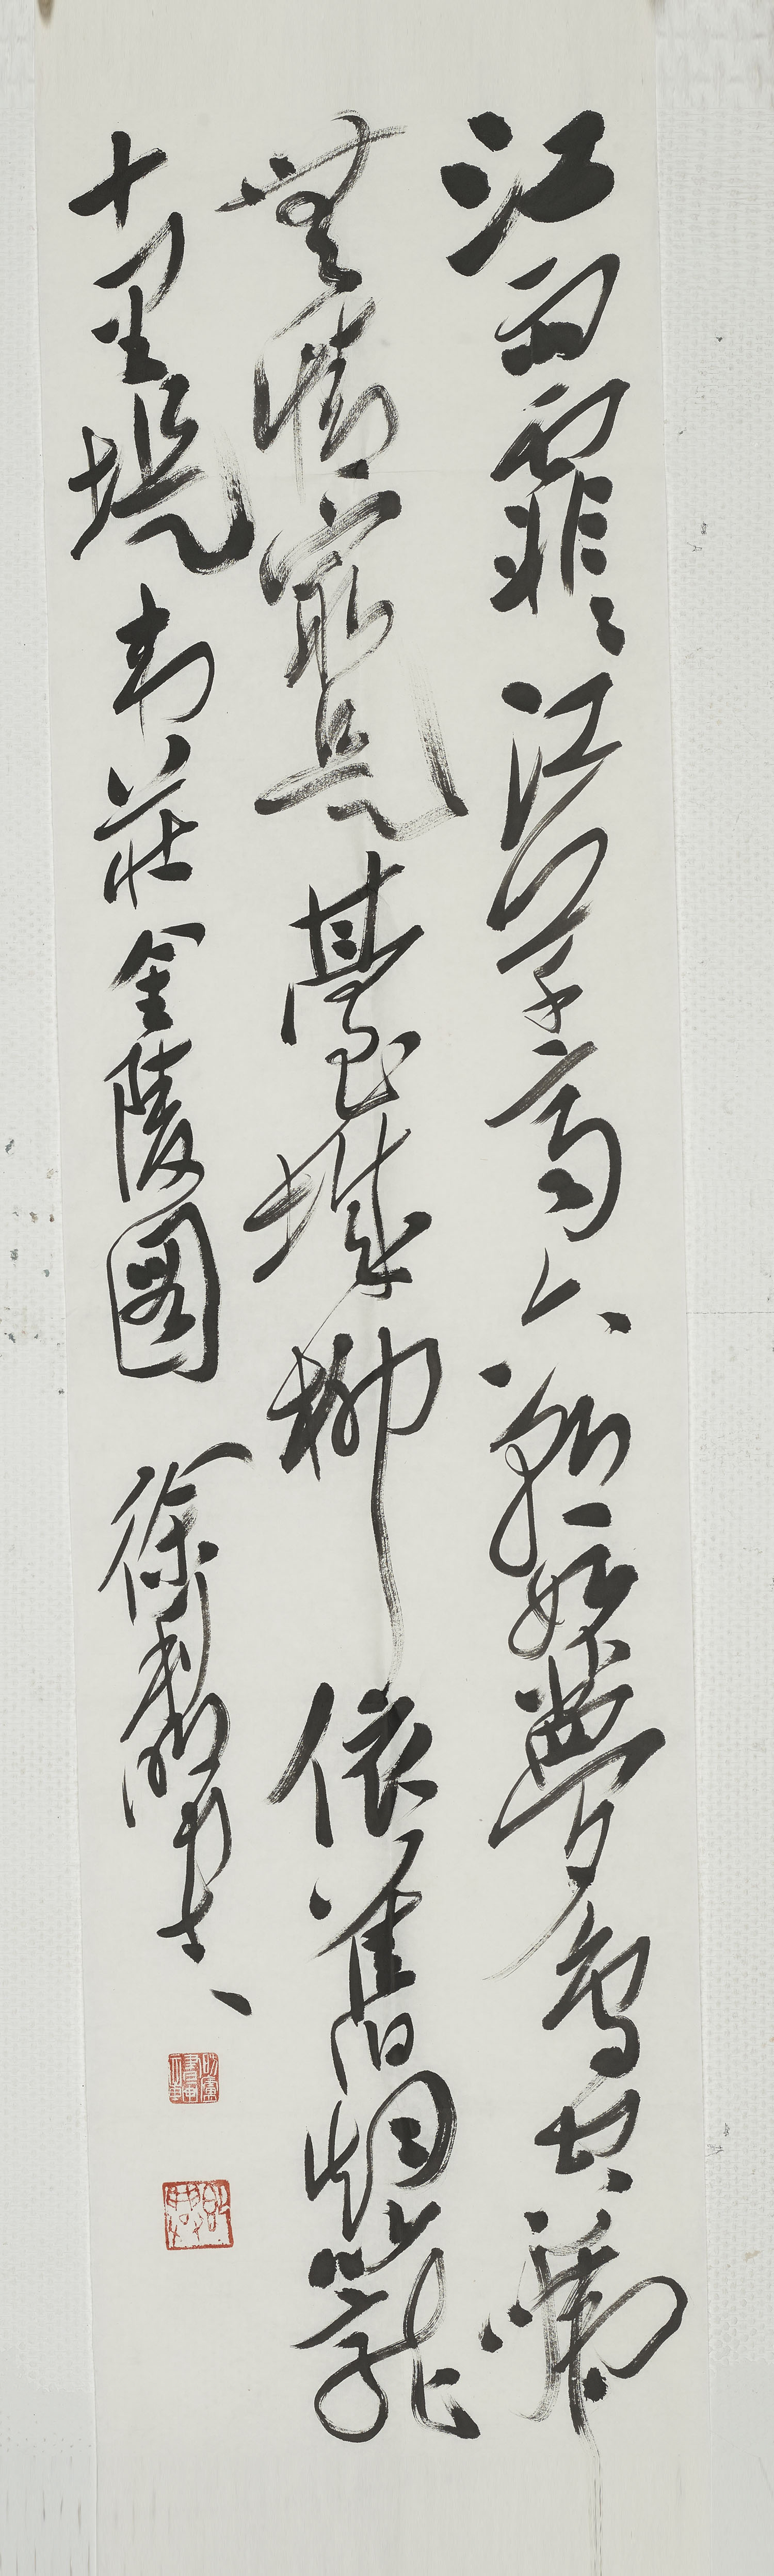 江雨霏霏江草齊六朝如夢鳥空啼
無情最是臺城柳依舊烟籠
十里堤韋莊金陵圖徐